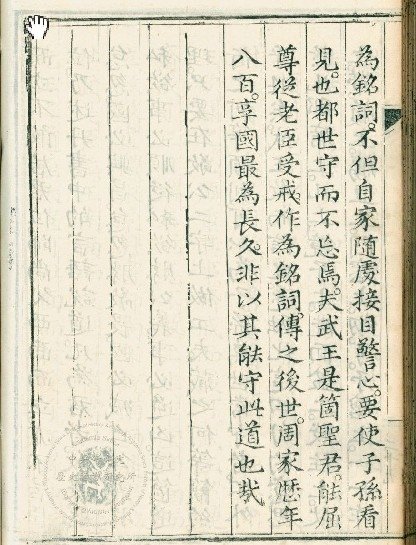 為銘詞。不但自家隨處接目警心。要使子孫看
見。也都世守而不忘焉。夫武王是箇聖君。能屈
尊從老臣受戒。作為銘詞。傳之後世。周家歷年
八百。享國最為長久。非以其能守此道也哉。